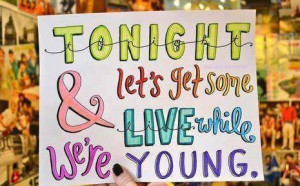 TONIGHT
& let's get some
LIVE while
We're YOUNG.